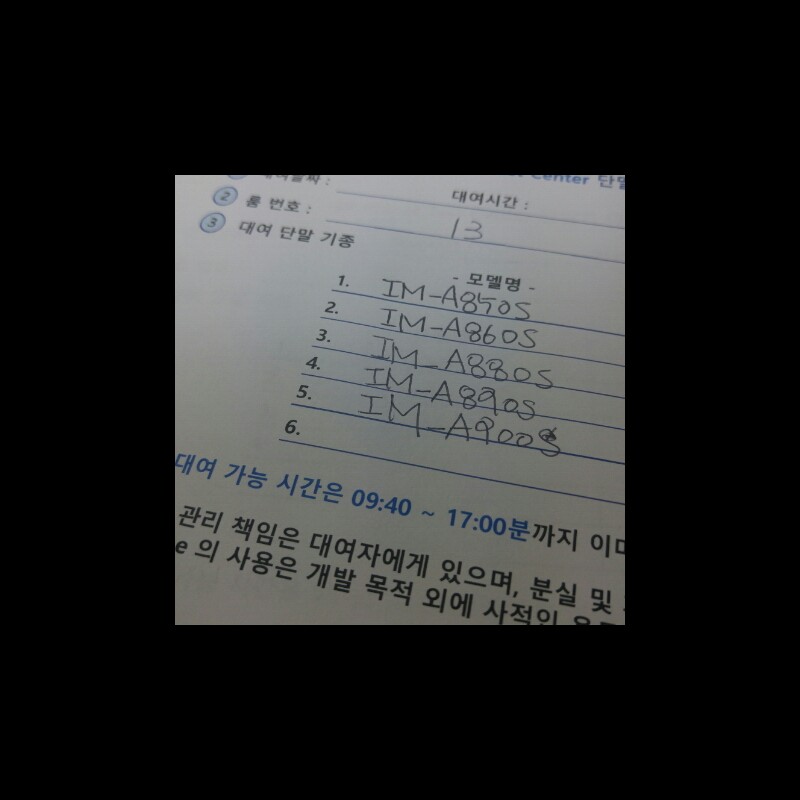 Center 단말
대여날짜 :
대여시간 :
② 룸 번호 : 13
③ 대여 단말 기종
- 모델명 -
1. IM-A850S
2. IM-A860S
3. IM-A880S
4. IM-A890S
5. IM-A900S
6.
대여 가능 시간은 09:40 ~ 17:00분까지 이며
관리 책임은 대여자에게 있으며, 분실 및
e 의 사용은 개발 목적 외에 사적인